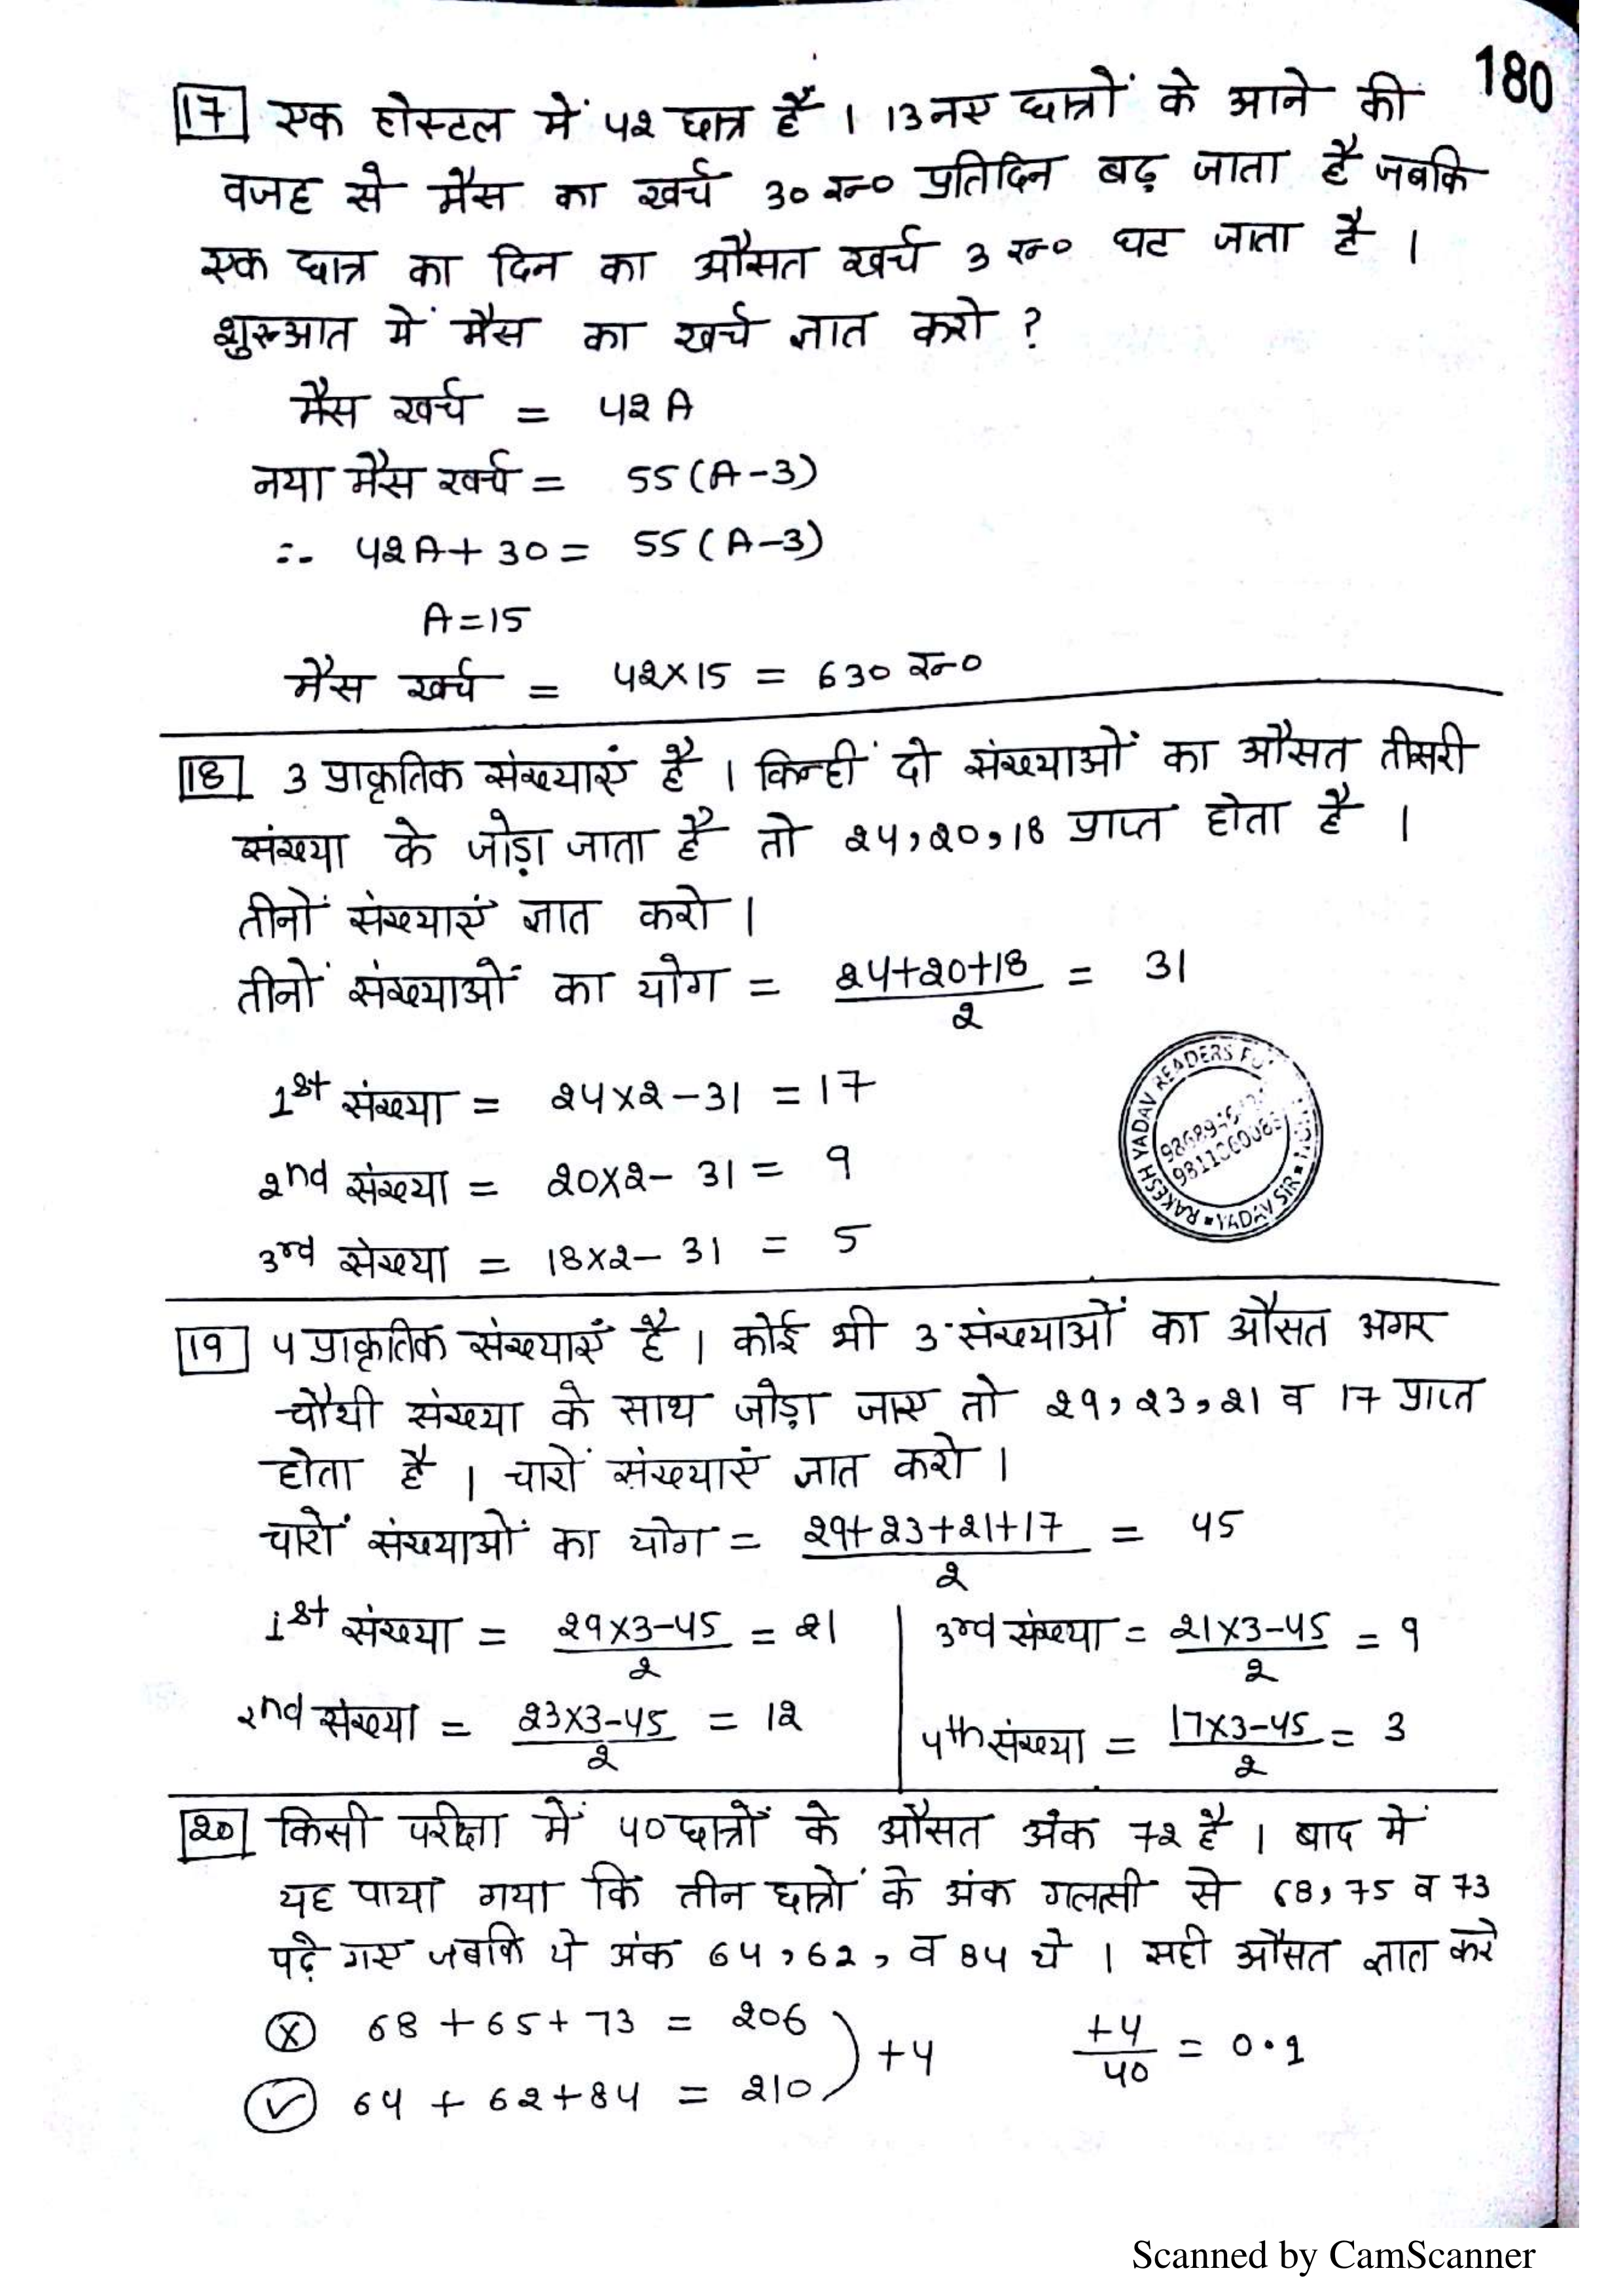 180
17 एक होस्टल में 42 छात्र हैं । 13 नए छात्रों के आने की
वजह से मैस का खर्च 30 रू० प्रतिदिन बढ़ जाता है जबकि
एक छात्र का दिन का औसत खर्च 3 रू० घट जाता है ।
शुरूआत में मैस का खर्च ज्ञात करो ?
मैस खर्च = 42A
नया मैस खर्च = 55(A-3)
∴ 42A+30 = 55(A-3)
A=15
मैस खर्च = 42×15 = 630 रू०
18 3 प्राकृतिक संख्याएं है । किन्हीं दो संख्याओं का औसत तीसरी
संख्या के जोड़ा जाता है तो 24,20,18 प्राप्त होता है ।
तीनों संख्याएं ज्ञात करो ।
तीनों संख्याओं का योग = 24+20+18/2 = 31
1st संख्या = 24×2-31 = 17
2nd संख्या = 20×2-31 = 9
3rd संख्या = 18×2-31 = 5
RAKESH YADAV READERS
YADAV SIR
19 4 प्राकृतिक संख्याएँ है । कोई भी 3 संख्याओं का औसत अगर
चौथी संख्या के साथ जोड़ा जाए तो 29,23,21 व 17 प्राप्त
होता है । चारों संख्याएं ज्ञात करो ।
चारों संख्याओं का योग = 29+23+21+17/2 = 45
1st संख्या = 29×3-45/2 = 21
3rd संख्या = 21×3-45/2 = 9
2nd संख्या = 23×3-45/2 = 12
4th संख्या = 17×3-45/2 = 3
20 किसी परीक्षा में 40 छात्रों के औसत अंक 72 है । बाद में
यह पाया गया कि तीन छात्रों के अंक गलती से 68,75 व 73
पढ़े गए जबकि ये अंक 64,62, व 84 थे । सही औसत ज्ञात करे
x 68+65+73 = 206
+4 +4/40 = 0.1
✓ 64+62+84 = 210
Scanned by CamScanner